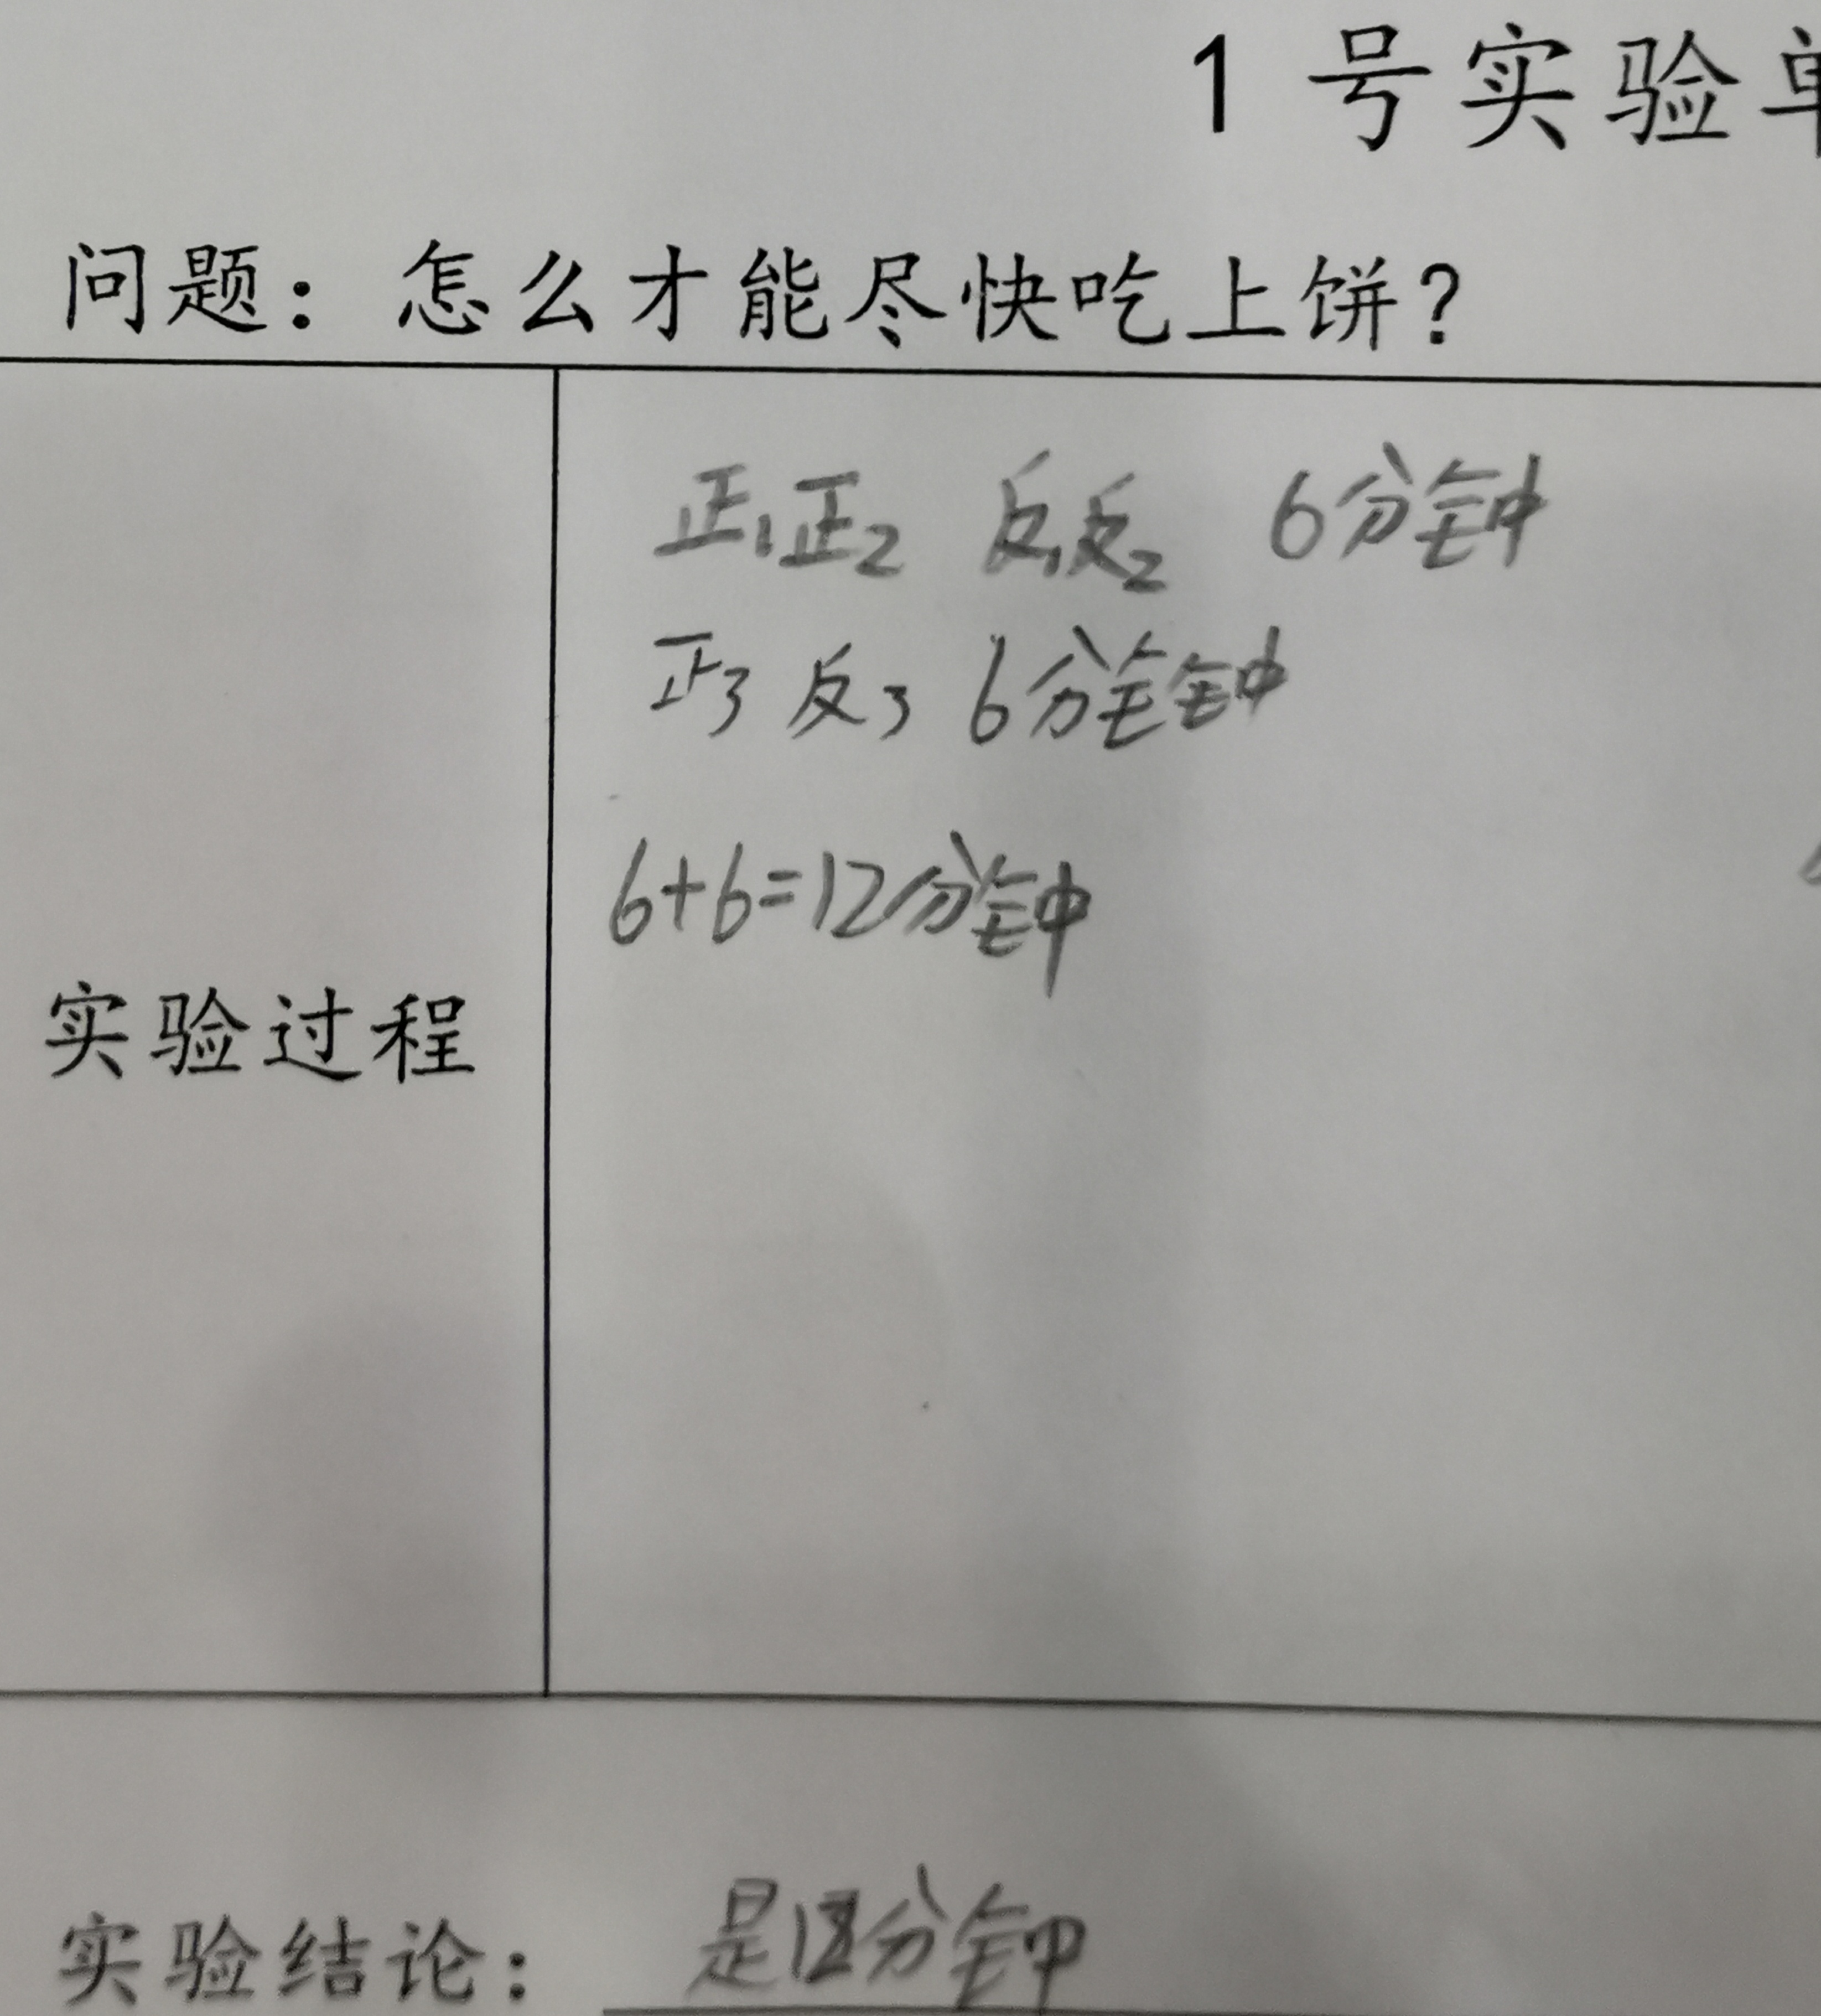 1 号实验单
问题：怎么才能尽快吃上饼？
正1正2 反1反2 6分钟
正3 反3 6分钟
6+6=12分钟
实验过程
实验结论： 是12分钟